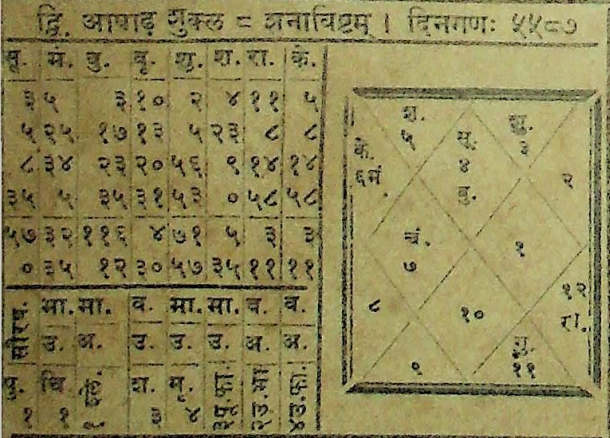 द्वि. आषाढ़ शुक्ल ८ शनाविष्टम् । दिनगणः ५५८७
सू. मं. बु. बृ. शु. श. रा. के.
३ ५ ३ १० २ ४ ११ ५
५ २५ १७ १३ ५ २३ ८ ८
८ ३४ २३ २० ५६ ९ १४ १४
३५ ५ ३५ ३१ ५३ ० ५८ ५८
५७ ३२ ११६ ४ ७१ ५ ३ ३
० ३५ १२ ३० ५७ ३५ ११ ११
मा. मा. व. मा. मा. व. व.
उ. अ. उ. उ. उ. अ. अ.
श. मृ.
१ १ ३ ४
श. ५
सू. ४ बु.
शु. ३
के. ६ मं.
२
चं. ७
१
८
१०
१२ रा.
९
११